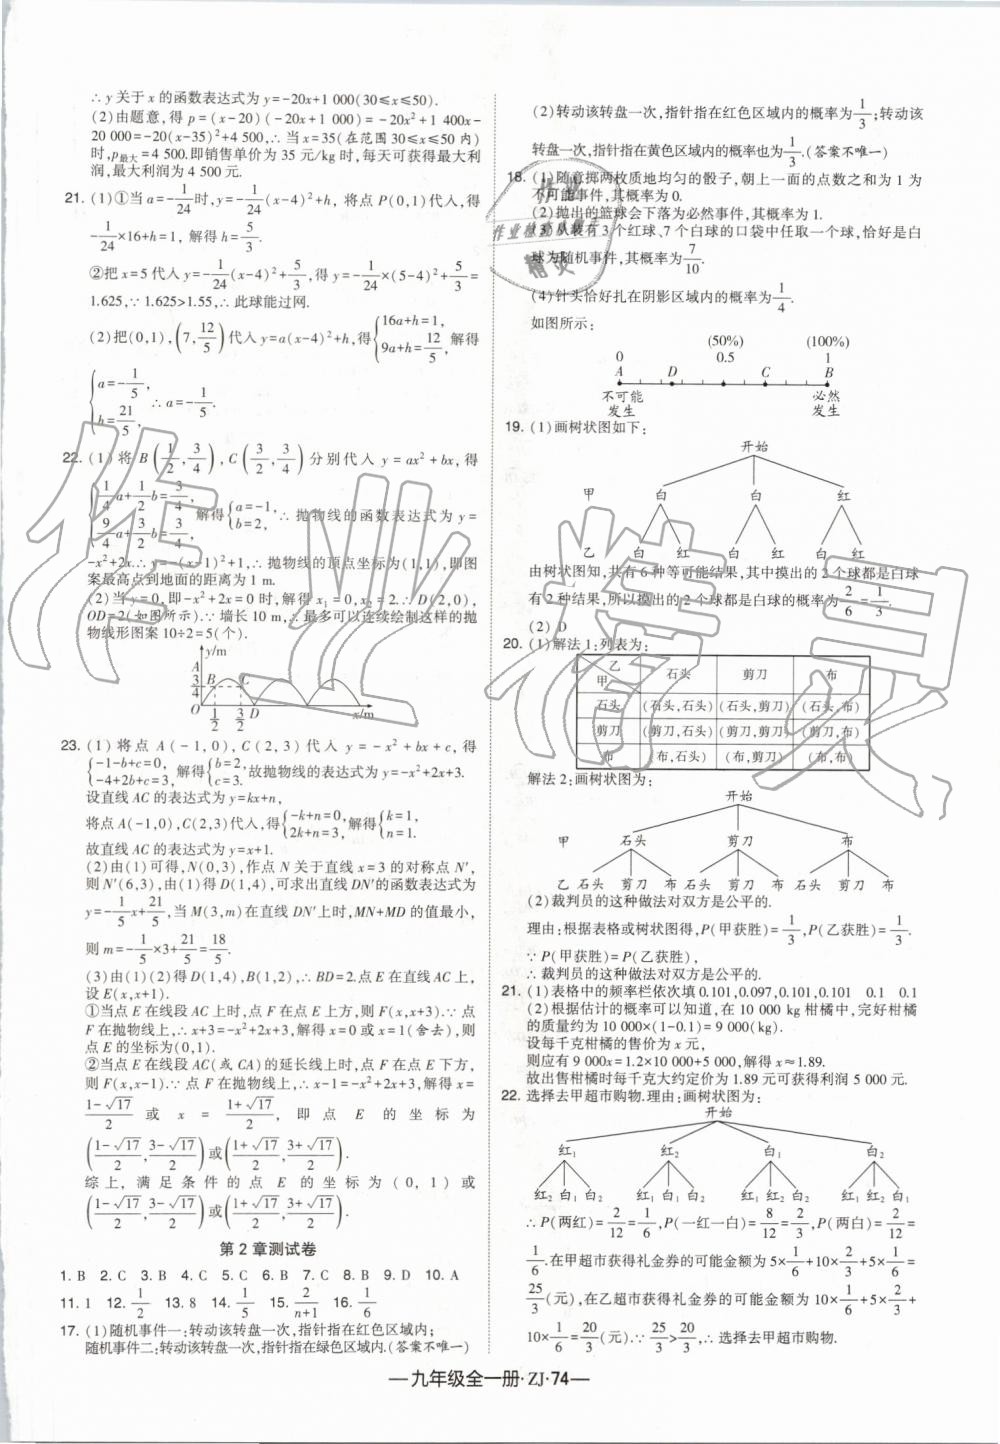 ∴y关于x的函数表达式为y=-20x+1 000(30≤x≤50).
(2)由题意,得p=(x-20)(-20x+1 000)=-20x²+1 400x-
20 000=-20(x-35)²+4 500,∴当x=35(在范围30≤x≤50内)
时,p最大=4 500.即销售单价为35元/kg时,每天可获得最大利
润,最大利润为4 500元.
21. (1)①当a=-1/24时,y=-1/24(x-4)²+h,将点P(0,1)代入,得
-1/24×16+h=1,解得h=5/3.
②把x=5代入y=-1/24(x-4)²+5/3,得y=-1/24×(5-4)²+5/3=
1.625,∵1.625>1.55,∴此球能过网.
(2)把(0,1),(7,12/5)代入y=a(x-4)²+h,得{16a+h=1, 9a+h=12/5,解得
{a=-1/5, h=21/5,∴a=-1/5.
22. (1)将B(1/2,3/4),C(3/2,3/4)分别代入y=ax²+bx,得
{1/4a+1/2b=3/4, 9/4a+3/2b=3/4,解得{a=-1, b=2,∴抛物线的函数表达式为y=
-x²+2x.∴y=-(x-1)²+1,∴抛物线的顶点坐标为(1,1),即图
案最高点到地面的距离为1 m.
(2)当y=0,即-x²+2x=0时,解得x₁=0,x₂=2.∴D(2,0),
OD=2(如图所示).∵墙长10 m,∴最多可以连续绘制这样的抛
物线形图案10÷2=5(个).
y/m
A
3/4 B C
O 1/2 3/2 D x/m
23. (1)将点A(-1,0),C(2,3)代入y=-x²+bx+c,得
{-1-b+c=0, -4+2b+c=3,解得{b=2, c=3.故抛物线的表达式为y=-x²+2x+3.
设直线AC的表达式为y=kx+n,
将点A(-1,0),C(2,3)代入,得{-k+n=0, 2k+n=3,解得{k=1, n=1.
故直线AC的表达式为y=x+1.
(2)由(1)可得,N(0,3),作点N关于直线x=3的对称点N′,
则N′(6,3),由(1)得D(1,4),可求出直线DN′的函数表达式为
y=-1/5x+21/5,当M(3,m)在直线DN′上时,MN+MD的值最小,
则m=-1/5×3+21/5=18/5.
(3)由(1)(2)得D(1,4),B(1,2),∴BD=2.点E在直线AC上,
设E(x,x+1).
①当点E在线段AC上时,点F在点E上方,则F(x,x+3).∵点
F在抛物线上,∴x+3=-x²+2x+3,解得x=0或x=1(舍去),则
点E的坐标为(0,1).
②当点E在线段AC(或CA)的延长线上时,点F在点E下方,
则F(x,x-1).∵点F在抛物线上,∴x-1=-x²+2x+3,解得x=
(1-√17)/2或x=(1+√17)/2,即点E的坐标为
((1-√17)/2,(3-√17)/2)或((1+√17)/2,(3+√17)/2).
综上,满足条件的点E的坐标为(0,1)或
((1-√17)/2,(3-√17)/2)或((1+√17)/2,(3+√17)/2).
第2章测试卷
1. B 2. C 3. B 4. C 5. C 6. B 7. C 8. B 9. D 10. A
11. 1 12. 1/2 13. 8 14. 1/5 15. 2/(n+1) 16. 1/6
17. (1)随机事件一:转动该转盘一次,指针指在红色区域内;
随机事件二:转动该转盘一次,指针指在绿色区域内.(答案不唯一)
(2)转动该转盘一次,指针指在红色区域内的概率为1/3;转动该
转盘一次,指针指在黄色区域内的概率也为1/3.(答案不唯一)
18. (1)随意掷两枚质地均匀的骰子,朝上一面的点数之和为1为
不可能事件,其概率为0.
(2)抛出的篮球会下落为必然事件,其概率为1.
(3)从装有3个红球、7个白球的口袋中任取一个球,恰好是白
球为随机事件,其概率为7/10.
(4)针头恰好扎在阴影区域内的概率为1/4.
如图所示:
(50%) (100%)
0 0.5 1
A D C B
不可能 必然
发生 发生
19. (1)画树状图如下:
开始
甲 白 白 红
乙 白 红 白 红 白 白
由树状图知,共有6种等可能结果,其中摸出的2个球都是白球
有2种结果,所以摸出的2个球都是白球的概率为2/6=1/3.
(2)D
20. (1)解法1:列表为:
乙 甲 石头 剪刀 布
石头 (石头,石头) (石头,剪刀) (石头,布)
剪刀 (剪刀,石头) (剪刀,剪刀) (剪刀,布)
布 (布,石头) (布,剪刀) (布,布)
解法2:画树状图为:
开始
甲 石头 剪刀 布
乙 石头 剪刀 布 石头 剪刀 布 石头 剪刀 布
(2)裁判员的这种做法对双方是公平的.
理由:根据表格或树状图得,P(甲获胜)=1/3,P(乙获胜)=1/3.
∵P(甲获胜)=P(乙获胜),
∴裁判员的这种做法对双方是公平的.
21. (1)表格中的频率栏依次填0.101,0.097,0.101,0.101 0.1 0.1
(2)根据估计的概率可以知道,在10 000 kg柑橘中,完好柑橘
的质量约为10 000×(1-0.1)=9 000(kg).
设每千克柑橘的售价为x元,
则应有9 000x=1.2×10 000+5 000,解得x≈1.89.
故出售柑橘时每千克大约定价为1.89元可获得利润5 000元.
22. 选择去甲超市购物.理由:画树状图为:
开始
红₁ 红₂ 白₁ 白₂
红₂ 白₁ 白₂ 红₁ 白₁ 白₂ 红₁ 红₂ 白₂ 红₁ 红₂ 白₁
∴P(两红)=2/12=1/6,P(一红一白)=8/12=2/3,P(两白)=2/12=
1/6.在甲超市获得礼金券的可能金额为5×1/6+10×2/3+5×1/6=
25/3(元),在乙超市获得礼金券的可能金额为10×1/6+5×2/3+
10×1/6=20/3(元).∵25/3>20/3,∴选择去甲超市购物.
—九年级全一册·ZJ·74—
作业精灵
作业
作业检查
精灵